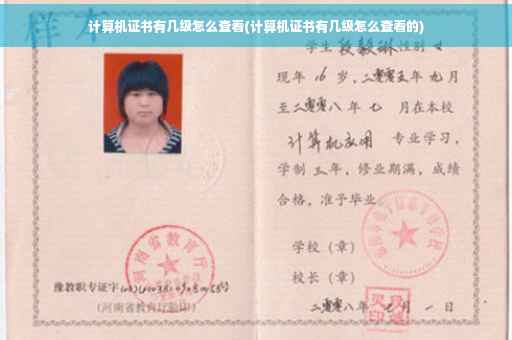 计算机证书有几级怎么查看(计算机证书有几级怎么查看的)
样本
学生段毅琳性别女
现年16岁，二零零五年九月
至二零零八年七月在本校
计算机应用专业学习，
学制三年，修业期满，成绩
合格，准予毕业。
学校（章）
校长（章）
二零零八年七月一日
河南省教育厅
豫教职专证字
(河南省教育厅验印)